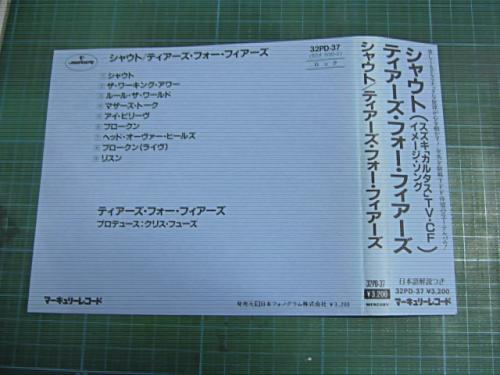 シャウト/ティアーズ・フォー・フィアーズ
32PD-37
ロック
シャウト
ザ・ワーキング・アワー
ルール・ザ・ワールド
マザーズ・トーク
アイ・ビリーヴ
ブロークン
ヘッド・オーヴァー・ヒールズ
ブロークン(ライヴ)
リスン
ティアーズ・フォー・フィアーズ
プロデュース:クリス・フューズ
マーキュリーレコード
発売元 日本フォノグラム株式会社 ¥3,200
シャウト/ティアーズ・フォー・フィアーズ
32PD-37
¥3,200
MERCURY
シャウト(スズキ「カルタス」TV-CFイメージ・ソング)
ティアーズ・フォー・フィアーズ
日本語解説つき
32PD-37 ¥3,200
マーキュリーレコード